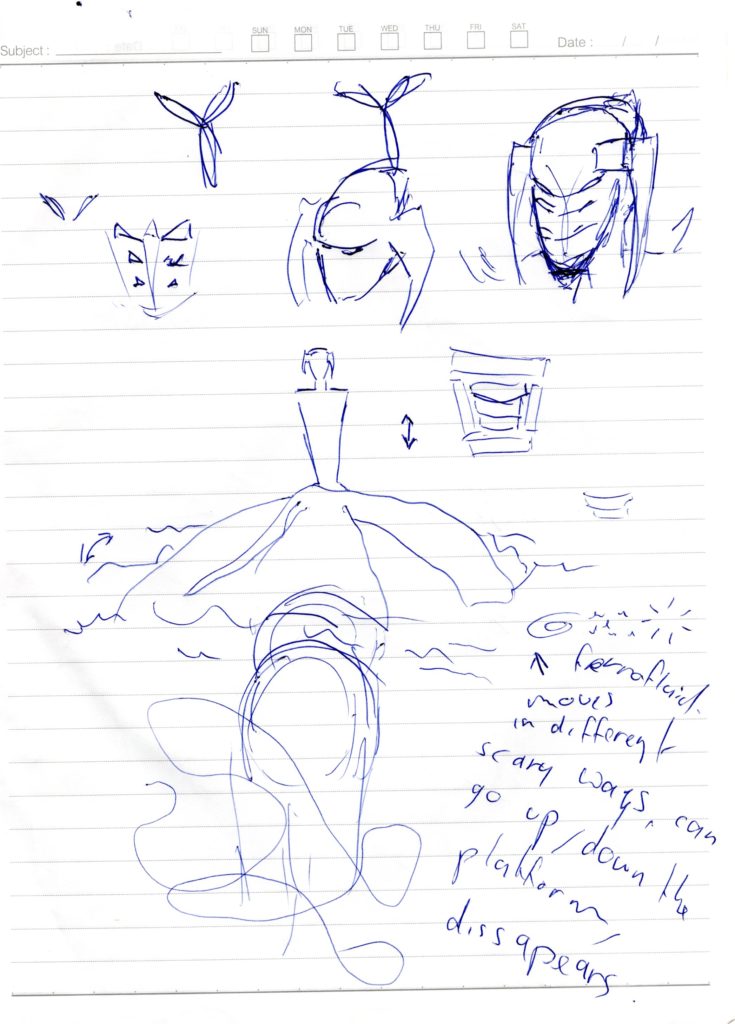 SUN MON TUE WED THU FRI SAT
Subject : Date : / /
ferrofluid
moves
in different
scary ways, can
go up/down the
platform
dissapears